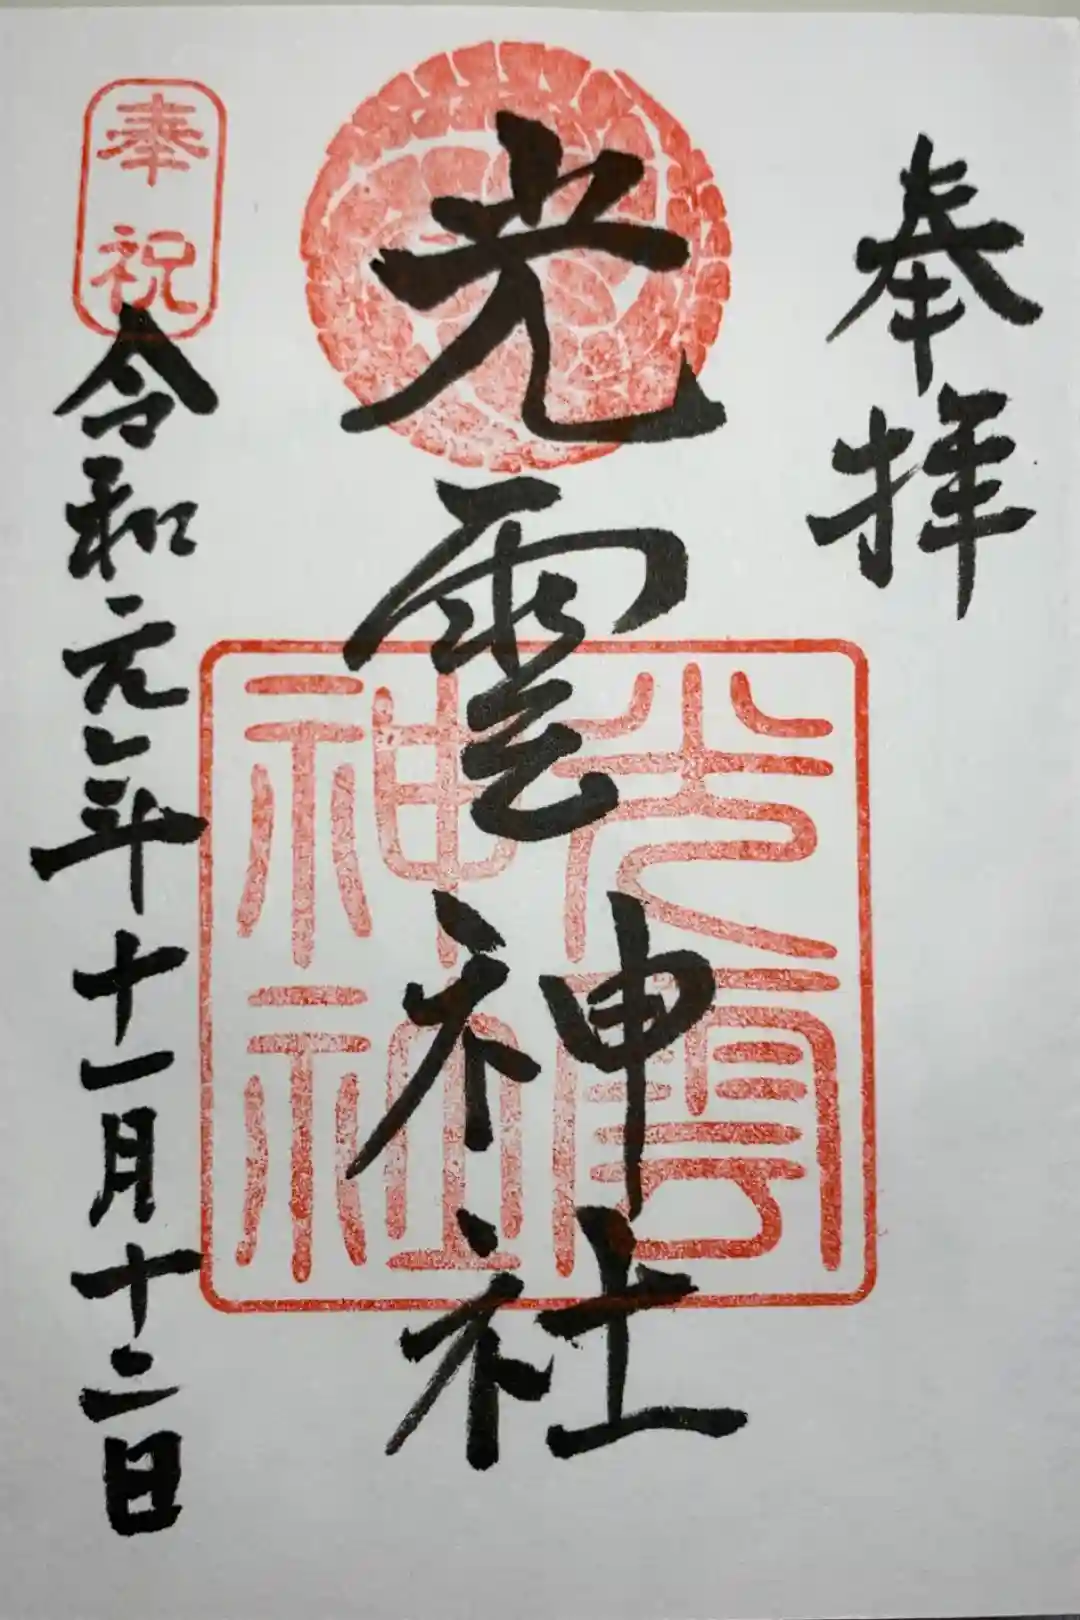 奉拝
光雲神社
光雲
神社
奉祝
令和元年十一月十二日